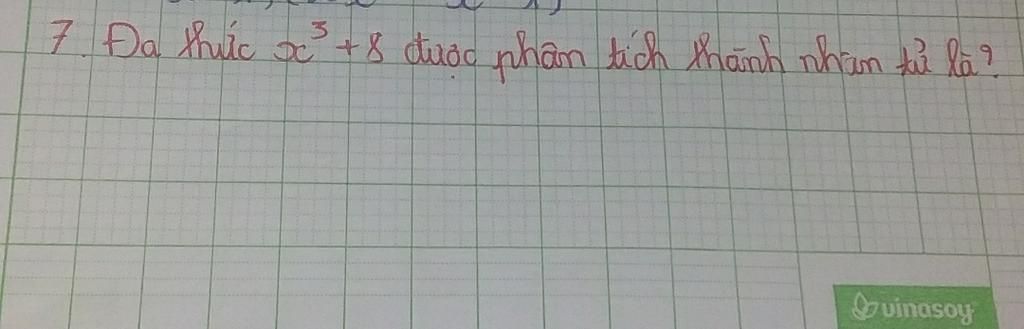 7. Đa thức x³ + 8 được phân tích thành nhân tử là?
vinasoy